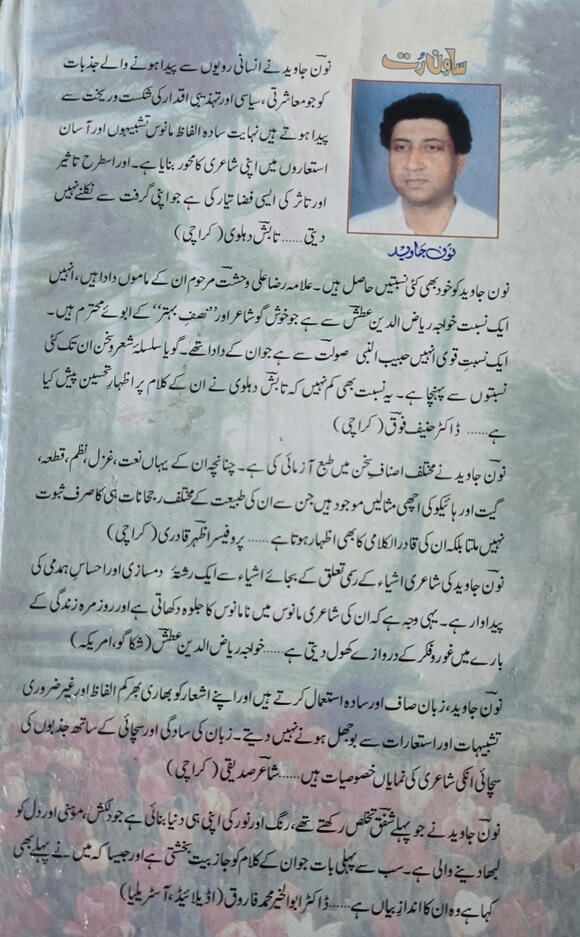 ساون رُت
نونؔ جاوید
نونؔ جاوید نے انسانی رویوں سے پیدا ہونے والے جذبات
کو جو معاشرتی، سیاسی اور تہذیبی اقدار کی شکست و ریخت سے
پیدا ہوتے ہیں نہایت سادہ الفاظ مانوس تشبیہوں اور آسان
استعاروں میں اپنی شاعری کا محور بنایا ہے۔ اور اسطرح تاثیر
اور تاثر کی ایسی فضا تیار کی ہے جو اپنی گرفت سے نکلنے نہیں
دیتی ...... تابشؔ دہلوی (کراچی)
نون جاوید کو خود بھی کئی نسبتیں حاصل ہیں۔ علامہ رضا علی وحشتؔ مرحوم ان کے ماموں دادا ہیں، انہیں
ایک نسبت خواجہ ریاض الدین عطشؔ سے ہے جو خوش گو شاعر اور ’’نصفِ بہتر‘‘ کے ابوئے محترم ہیں۔
ایک نسبتِ قوی انہیں حبیب النبی صولتؔ سے ہے جو ان کے دادا تھے۔ گویا سلسلۂ شعر و سخن ان تک کئی
نسبتوں سے پہنچا ہے۔ یہ نسبت بھی کم نہیں کہ تابشؔ دہلوی نے ان کے کلام پر اظہارِ تحسین پیش کیا
ہے...... ڈاکٹر حنیف فوقؔ (کراچی)
نونؔ جاوید نے مختلف اصنافِ سخن میں طبع آزمائی کی ہے۔ چنانچہ ان کے یہاں نعت، غزل، نظم، قطعہ،
گیت اور ہائیکو کی اچھی مثالیں موجود ہیں جن سے ان کی طبیعت کے مختلف رجحانات ہی کا صرف ثبوت
نہیں ملتا بلکہ ان کی قادر الکلامی کا بھی اظہار ہوتا ہے...... پروفیسر اظہرؔ قادری (کراچی)
نونؔ جاوید کی شاعری اشیاء کے رسمی تعلق کے بجائے اشیاء سے ایک رشتۂ دمسازی اور احساسِ ہمدمی کی
پیداوار ہے۔ یہی وجہ ہے کہ ان کی شاعری مانوس میں نامانوس کا جلوہ دکھاتی ہے اور روزمرہ زندگی کے
بارے میں غور و فکر کے دروازے کھول دیتی ہے......خواجہ ریاض الدین عطشؔ (شکاگو، امریکہ)
نونؔ جاوید، زبان صاف اور سادہ استعمال کرتے ہیں اور اپنے اشعار کو بھاری بھر کم الفاظ اور غیر ضروری
تشبیہات اور استعارات سے بوجھل ہونے نہیں دیتے۔ زبان کی سادگی اور سچائی کے ساتھ جذبوں کی
سچائی انکی شاعری کی نمایاں خصوصیات ہیں......شاعرؔ صدیقی (کراچی)
نونؔ جاوید نے جو پہلے شفقؔ تخلص رکھتے تھے، رنگ اور نور کی اپنی ہی دنیا بنائی ہے جو دلکش، موہنی اور دل کو
لبھا دینے والی ہے۔ سب سے پہلی بات جو ان کے کلام کو جاذبیت بخشتی ہے اور جیسا کہ میں نے پہلے بھی
کہا ہے وہ ان کا اندازِ بیاں ہے......ڈاکٹر ابوالخیر محمد فاروق (اڈیلائیڈ، آسٹریلیا)